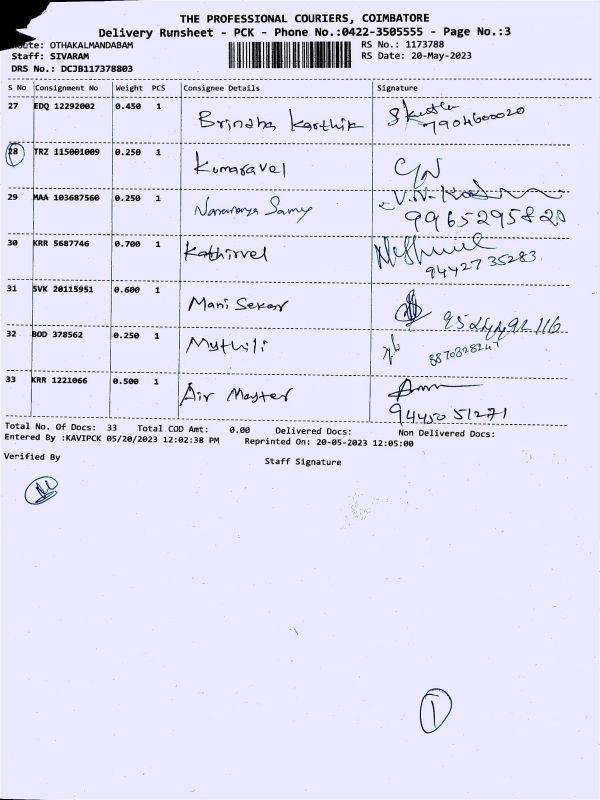 THE PROFESSIONAL COURIERS, COIMBATORE
Delivery Runsheet - PCK - Phone No.:0422-3505555 - Page No.:3
Route: OTHAKALMANDABAM
RS No.: 1173788
Staff: SIVARAM
RS Date: 20-May-2023
DRS No.: DCJB117378803
S No Consignment No Weight PCS Consignee Details Signature
27 EDQ 12292002 0.450 1 Brindha Karthik
7904600020
28 TRZ 115001009 0.250 1 Kumaravel
29 MAA 103687560 0.250 1 Narayana Samy
9965295820
30 KRR 5687746 0.700 1 Kathirvel
94427 35283
31 SVK 20115951 0.600 1 Mani Sekar
32 BOD 378562 0.250 1 Mythili
33 KRR 1221066 0.500 1 Air Master
94450 51271
Total No. Of Docs: 33 Total COD Amt: 0.00 Delivered Docs: Non Delivered Docs:
Entered By :KAVIPCK 05/20/2023 12:02:38 PM Reprinted On: 20-05-2023 12:05:00
Verified By
Staff Signature
1